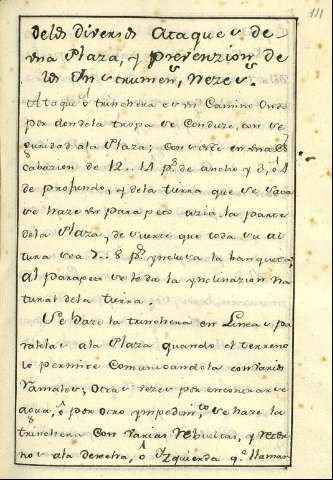 111
delos diversos Ataques de
una Plaza, y prevenzion de
los Ynstrumen.s Nezes.s
Ataque ó trinchera es un Camino Ondo
por donde la tropa se Conduze, con se
guridad ala Plaza; Consiste en una es
cabazion de 12. 14 p.s de ancho y 3, ó 4
de profundo, y dela tierra que se saca
se haze un parapeto azia la parte
dela Plaza, de suerte que toda su al
tura sea d. 8 p.s ynclusa la banqueta,
al parapeto se le da la ynclinazion na
tural dela tierra.
Se haze la trinchera en Lineas pa
ralelas ala Plaza quando el terreno
lo permite Comunicandola con varios
Ramales; Otras vezes por encontrarse
agua, ô por otro ympedim.to se haze la
trinchera con varias Rebueltas, y
nos ala derecha, ô Yzquierda q.e llaman